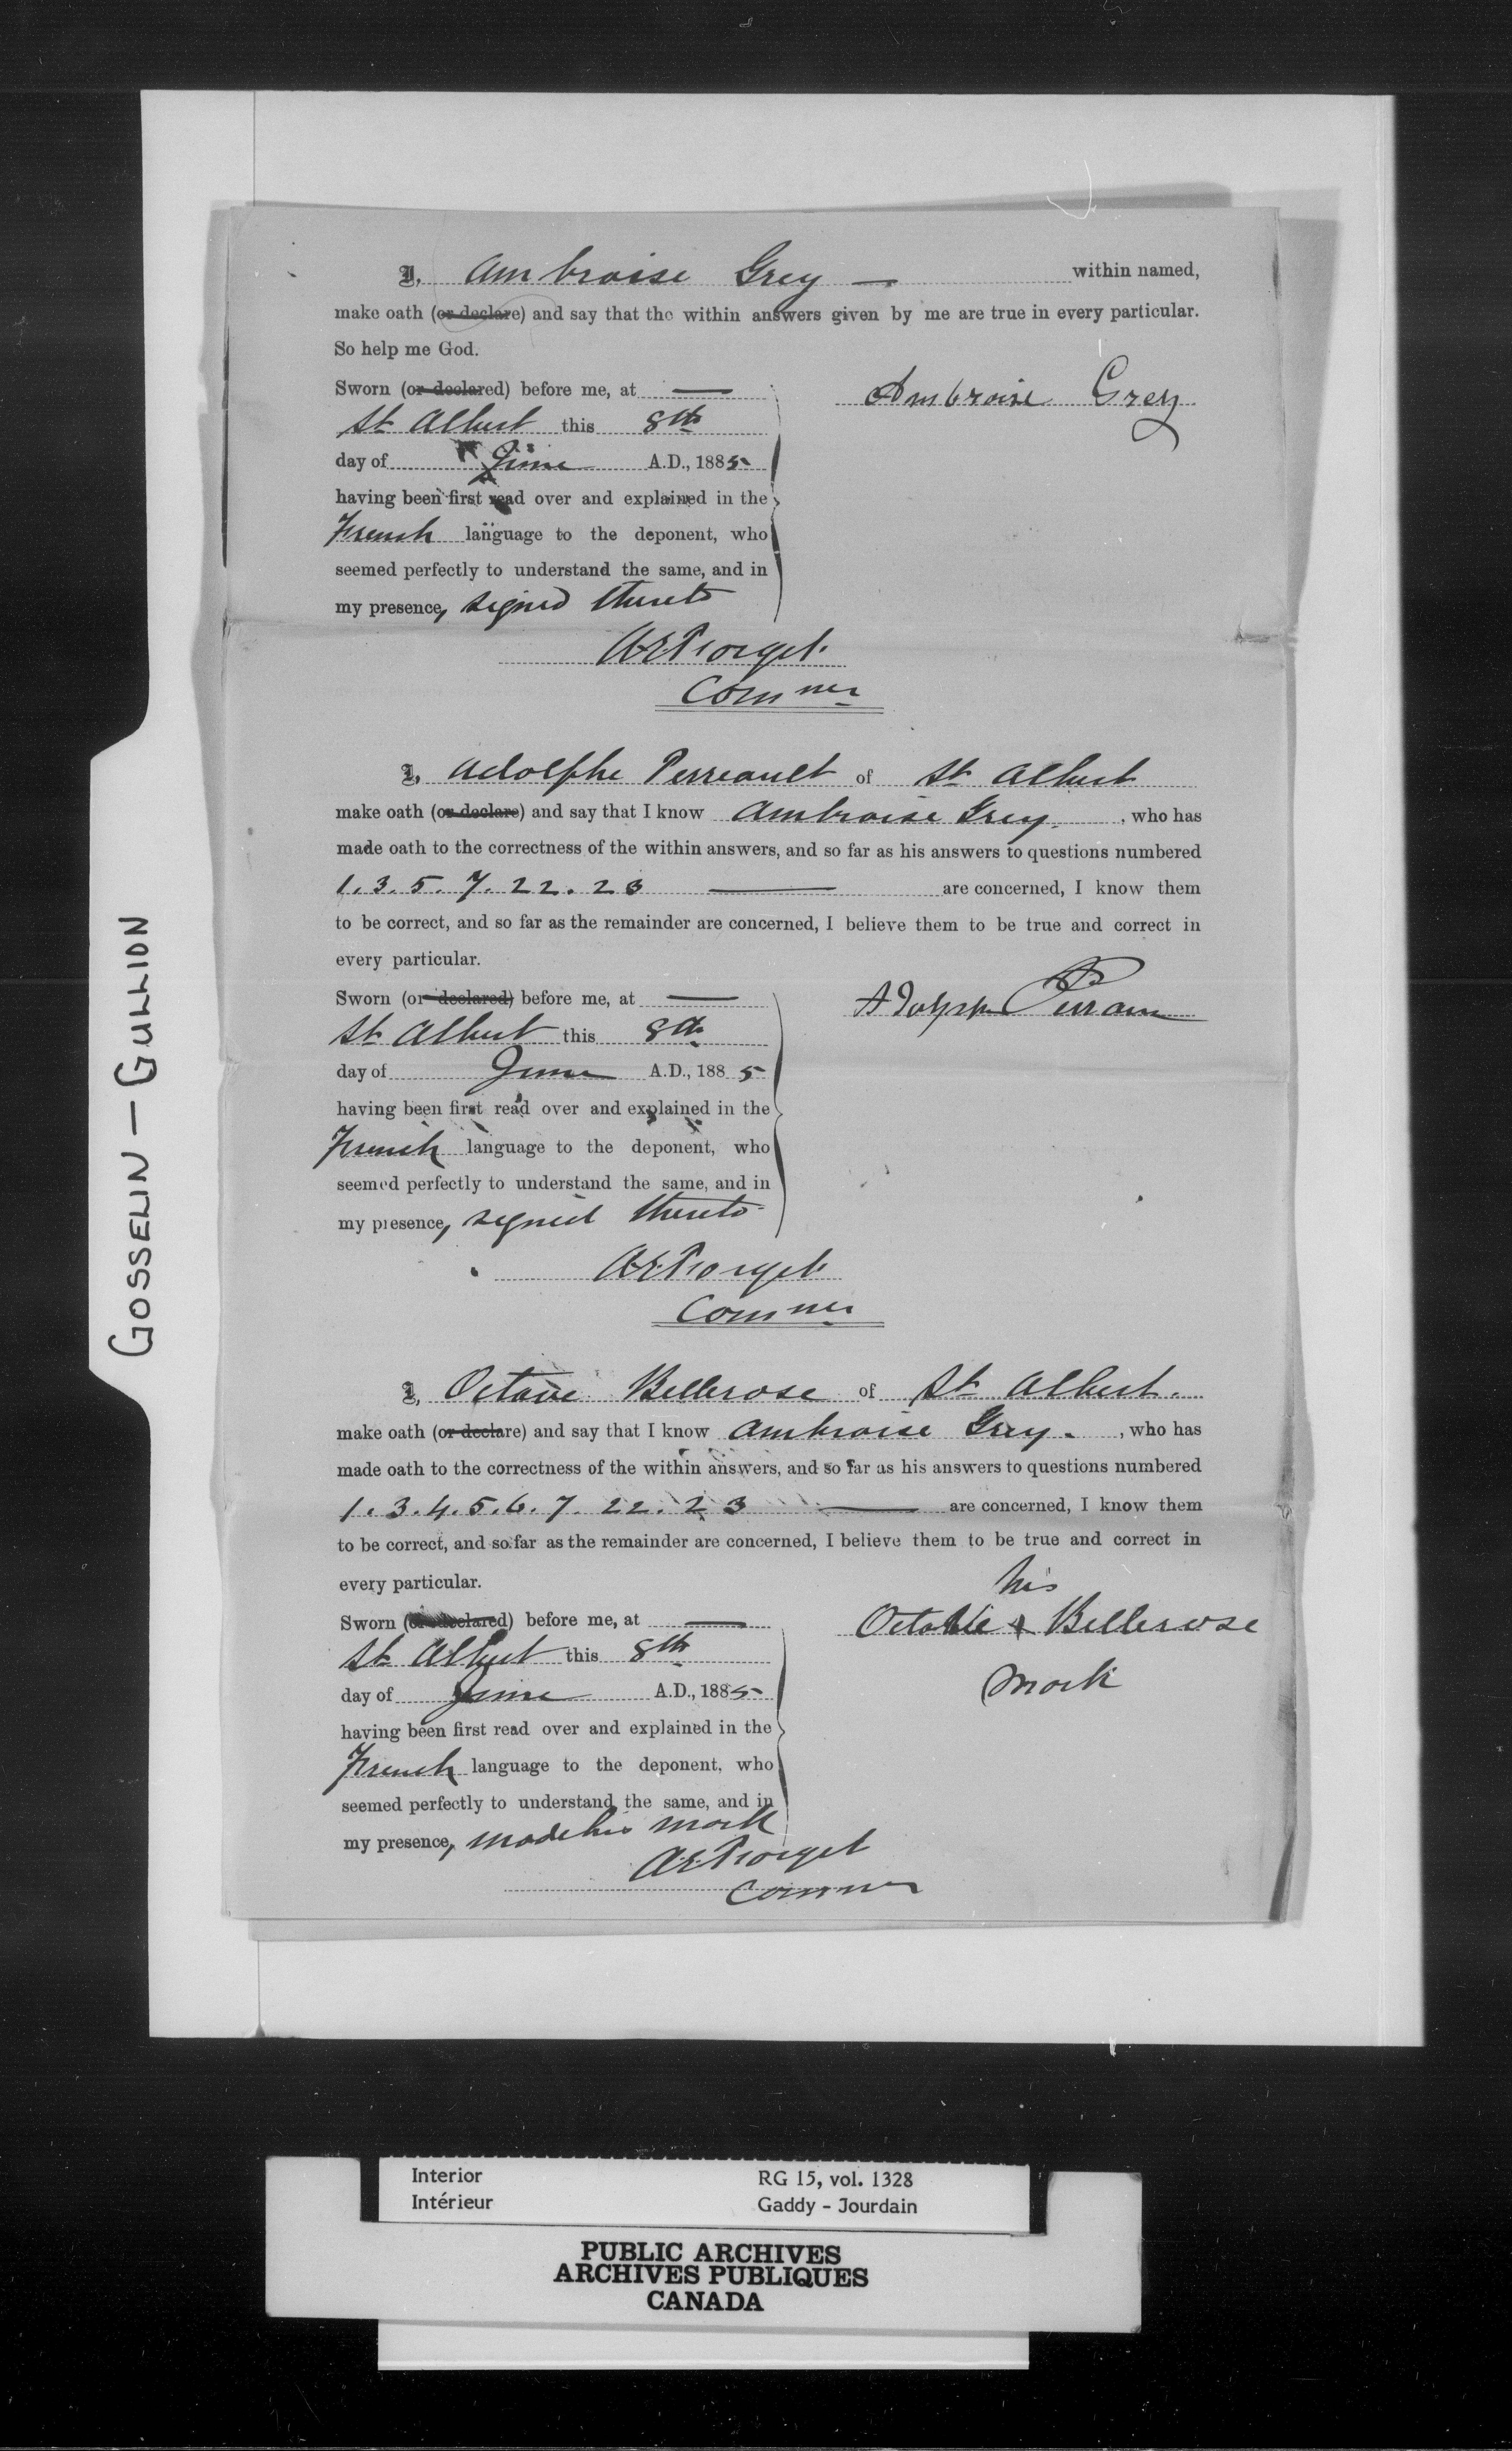 I, Ambroise Grey — within named,
make oath (or declare) and say that the within answers given by me are true in every particular.
So help me God.
Sworn (or declared) before me, at —
St Albert this 8th
day of June A.D., 1885
having been first read over and explained in the
French language to the deponent, who
seemed perfectly to understand the same, and in
my presence, signed thereto
Ambroise Grey
A.E. Forget
Commer
I, Adolphe Perreault of St Albert
make oath (or declare) and say that I know Ambroise Grey, who has
made oath to the correctness of the within answers, and so far as his answers to questions numbered
1. 3. 5. 7. 22. 23 — are concerned, I know them
to be correct, and so far as the remainder are concerned, I believe them to be true and correct in
every particular.
Sworn (or declared) before me, at —
St Albert this 8th
day of June A.D., 1885
having been first read over and explained in the
French language to the deponent, who
seemed perfectly to understand the same, and in
my presence, signed thereto
A.E. Forget
Commer
I, Octave Bellerose of St Albert.
make oath (or declare) and say that I know Ambroise Grey. , who has
made oath to the correctness of the within answers, and so far as his answers to questions numbered
1. 3. 4. 5. 6. 7. 22. 23 — are concerned, I know them
to be correct, and so far as the remainder are concerned, I believe them to be true and correct in
every particular.
Sworn (or declared) before me, at —
St Albert this 8th
day of June A.D., 1885
having been first read over and explained in the
French language to the deponent, who
seemed perfectly to understand the same, and in
my presence, made his mark
his
Octave x Bellerose
mark
A.E. Forget
Commer
GOSSELIN — GULLION
Interior RG 15, vol. 1328
Intérieur Gaddy - Jourdain
PUBLIC ARCHIVES
ARCHIVES PUBLIQUES
CANADA